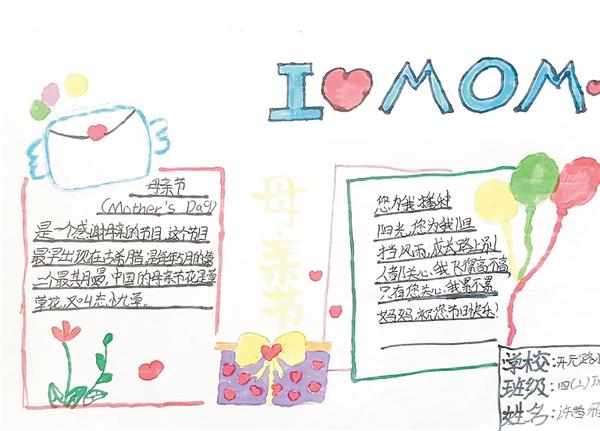 I MOM
母亲节
(Mother's Day)
是一个感谢母亲的节日,这个节日
最早出现在古希腊,是每年5月的第
一个 中国的母亲节花是萱
草花,又叫忘忧草。
母亲节
您为我播种
阳光,您为我阻
挡风雨,成长路上别
人都关心,我飞得高不高,
只有您关心,我累不累
妈妈,祝您节日快乐!
学校:开元路
班级:四
姓名:许